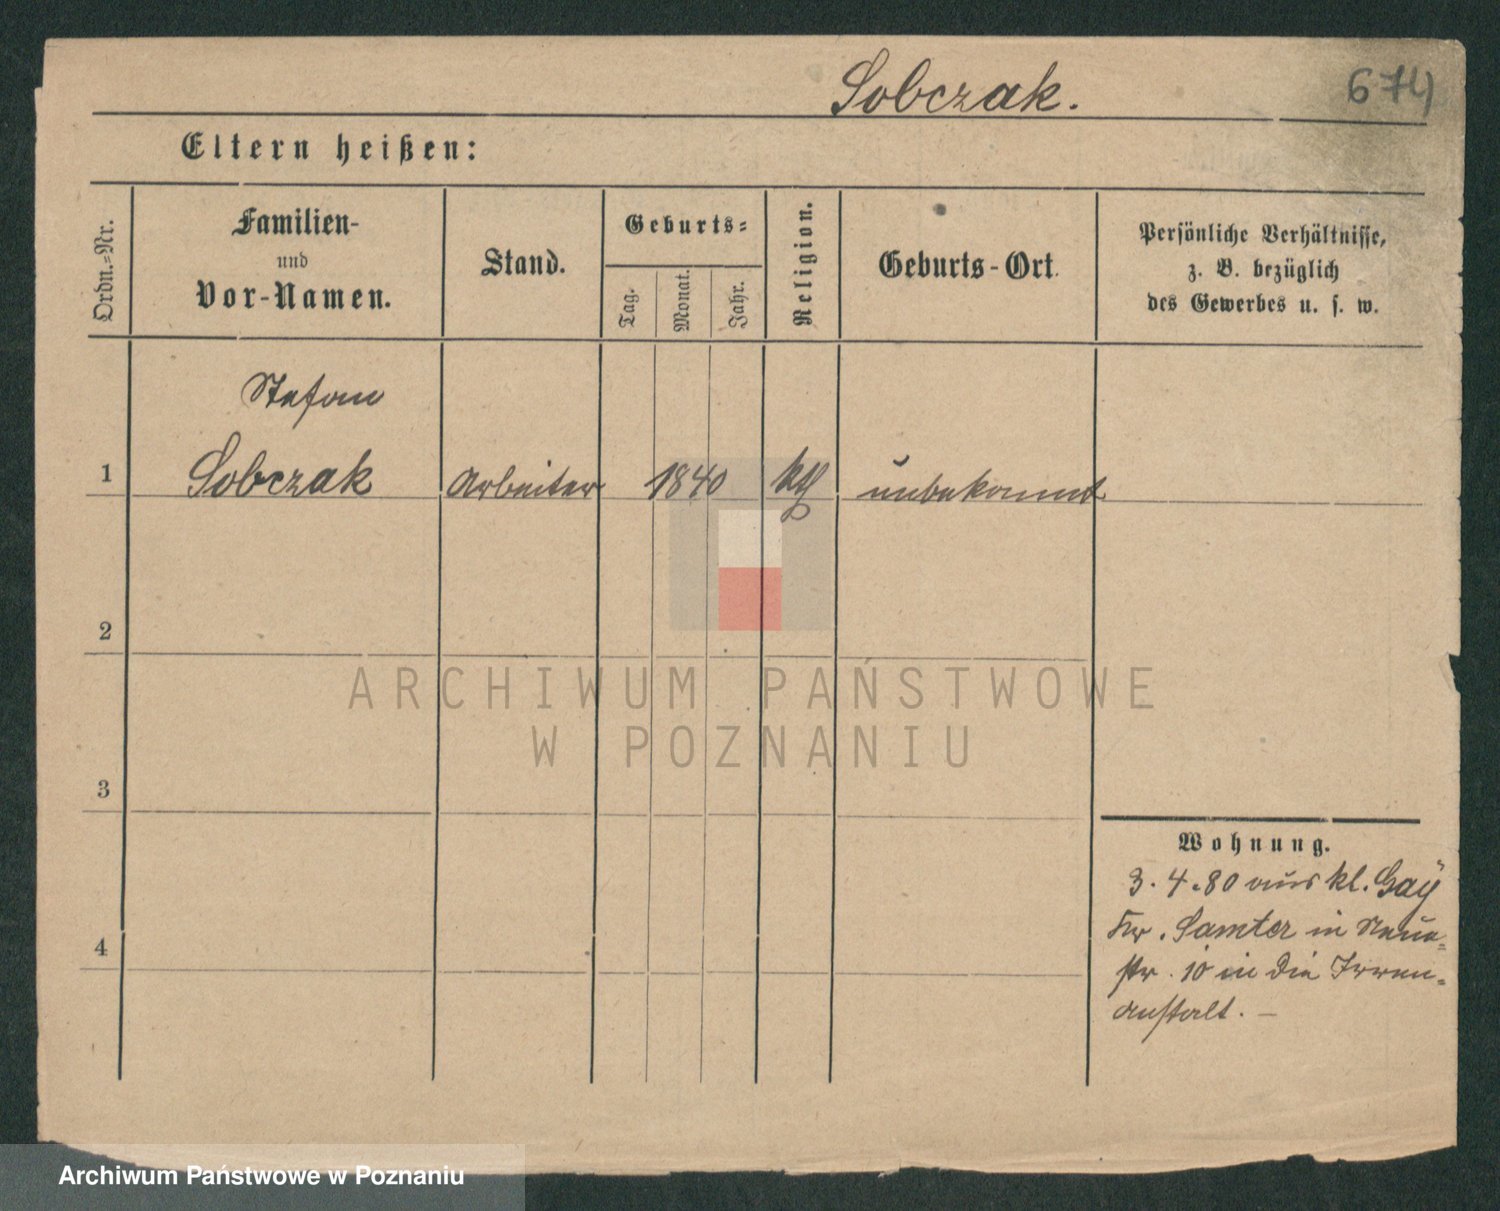 Sobczak.
674
Eltern heißen:
Ordn.-Nr.
Familien-
und
Vor-Namen.
Stand.
Geburts-
Tag.
Monat.
Jahr.
Religion.
Geburts-Ort.
Persönliche Verhältnisse,
z. B. bezüglich
des Gewerbes u. s. w.
Stefan
1 Sobczak Arbeiter 1840 kth unbekannt.
2
ARCHIWUM PAŃSTWOWE
W POZNANIU
3
Wohnung.
3.4.80 aus kl. Gaÿ
Kr. Samter in Neue-
str. 10 in die Irren-
anstalt. —
4
Archiwum Państwowe w Poznaniu